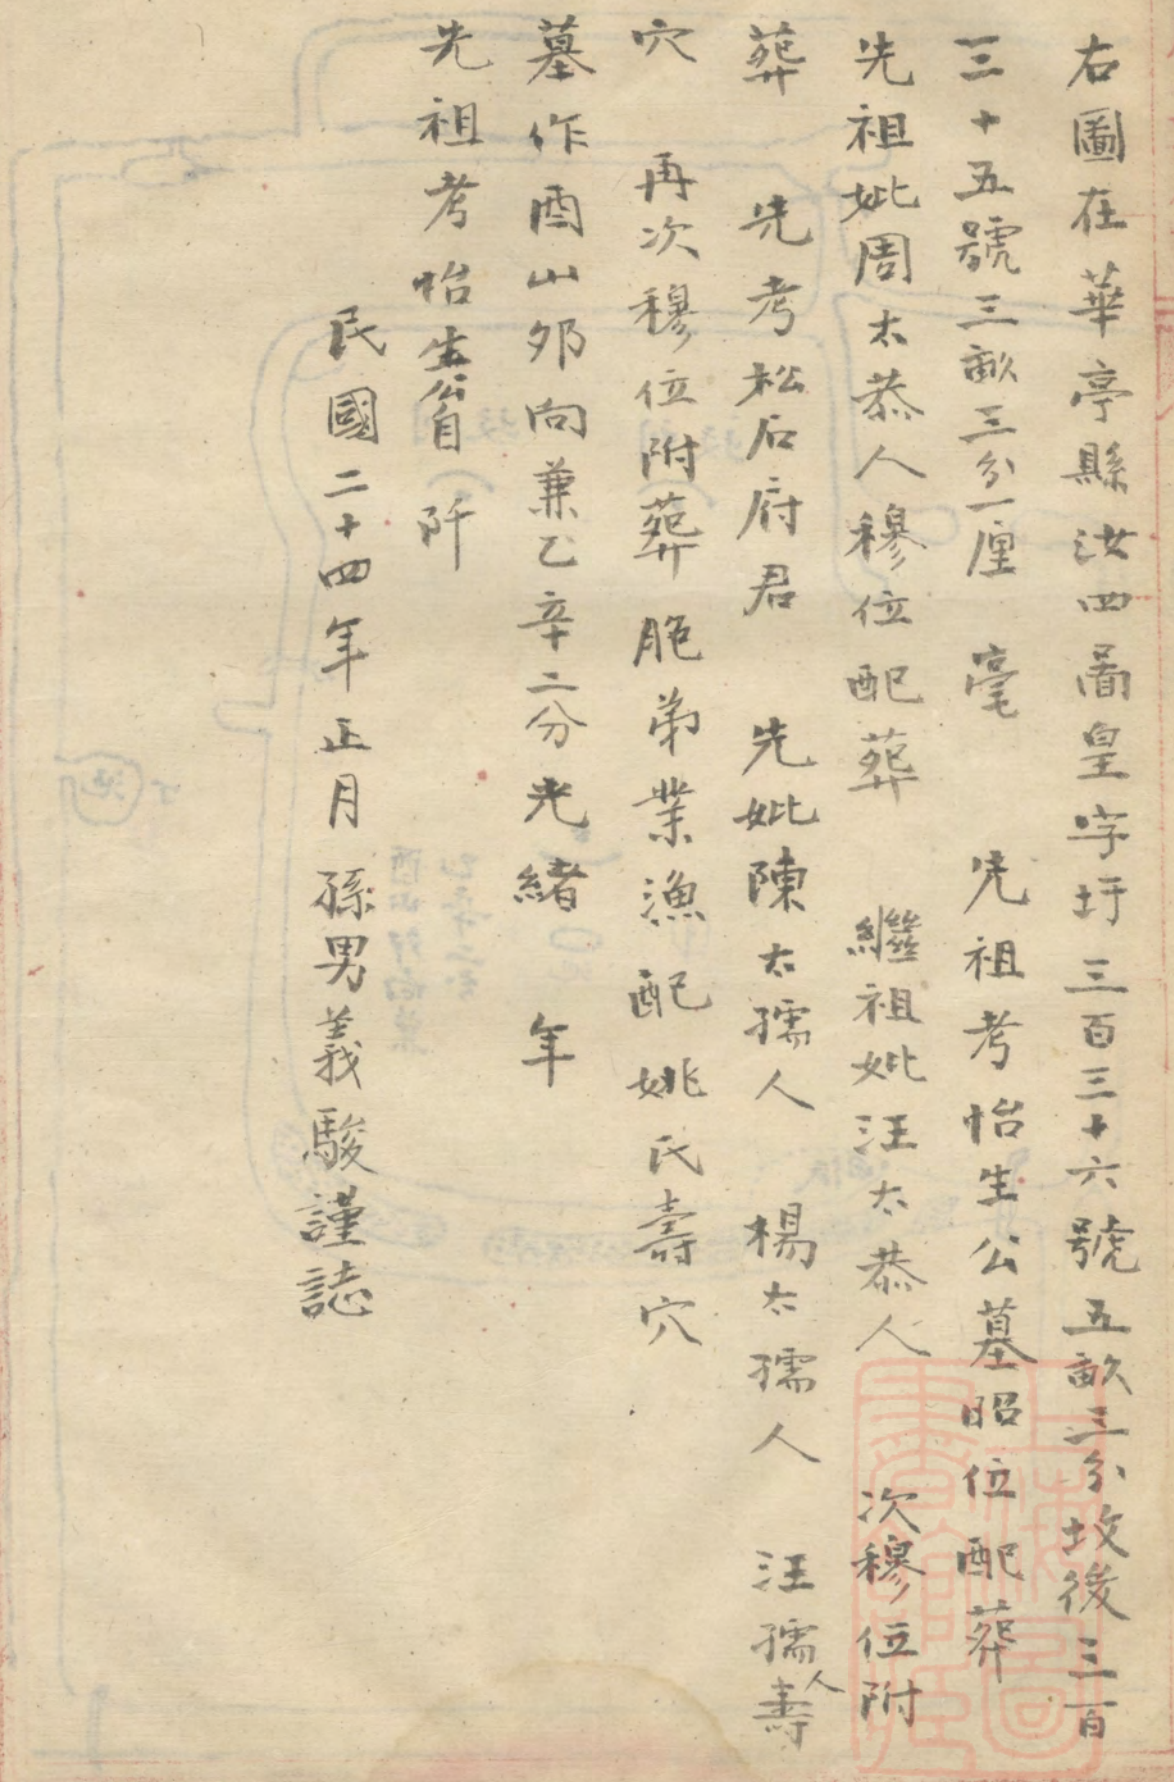 右圖在華亭縣汶四啚皇字圩三百三十六號五畝三分坟後三百
三十五號三畝三分一厘　毫　先祖考怡生公墓昭位配葬
先祖妣周太恭人穆位配葬　繼祖妣汪太恭人　次穆位附
葬　先考松石府君　先妣陳太孺人　楊太孺人　汪孺人壽
穴　再次穆位附葬胞弟業漁配姚氏壽穴
墓作酉山夘向兼乙辛二分光緒　年
先祖考怡生公自阡
民國二十四年正月孫男義駿謹誌
上海圖書館藏